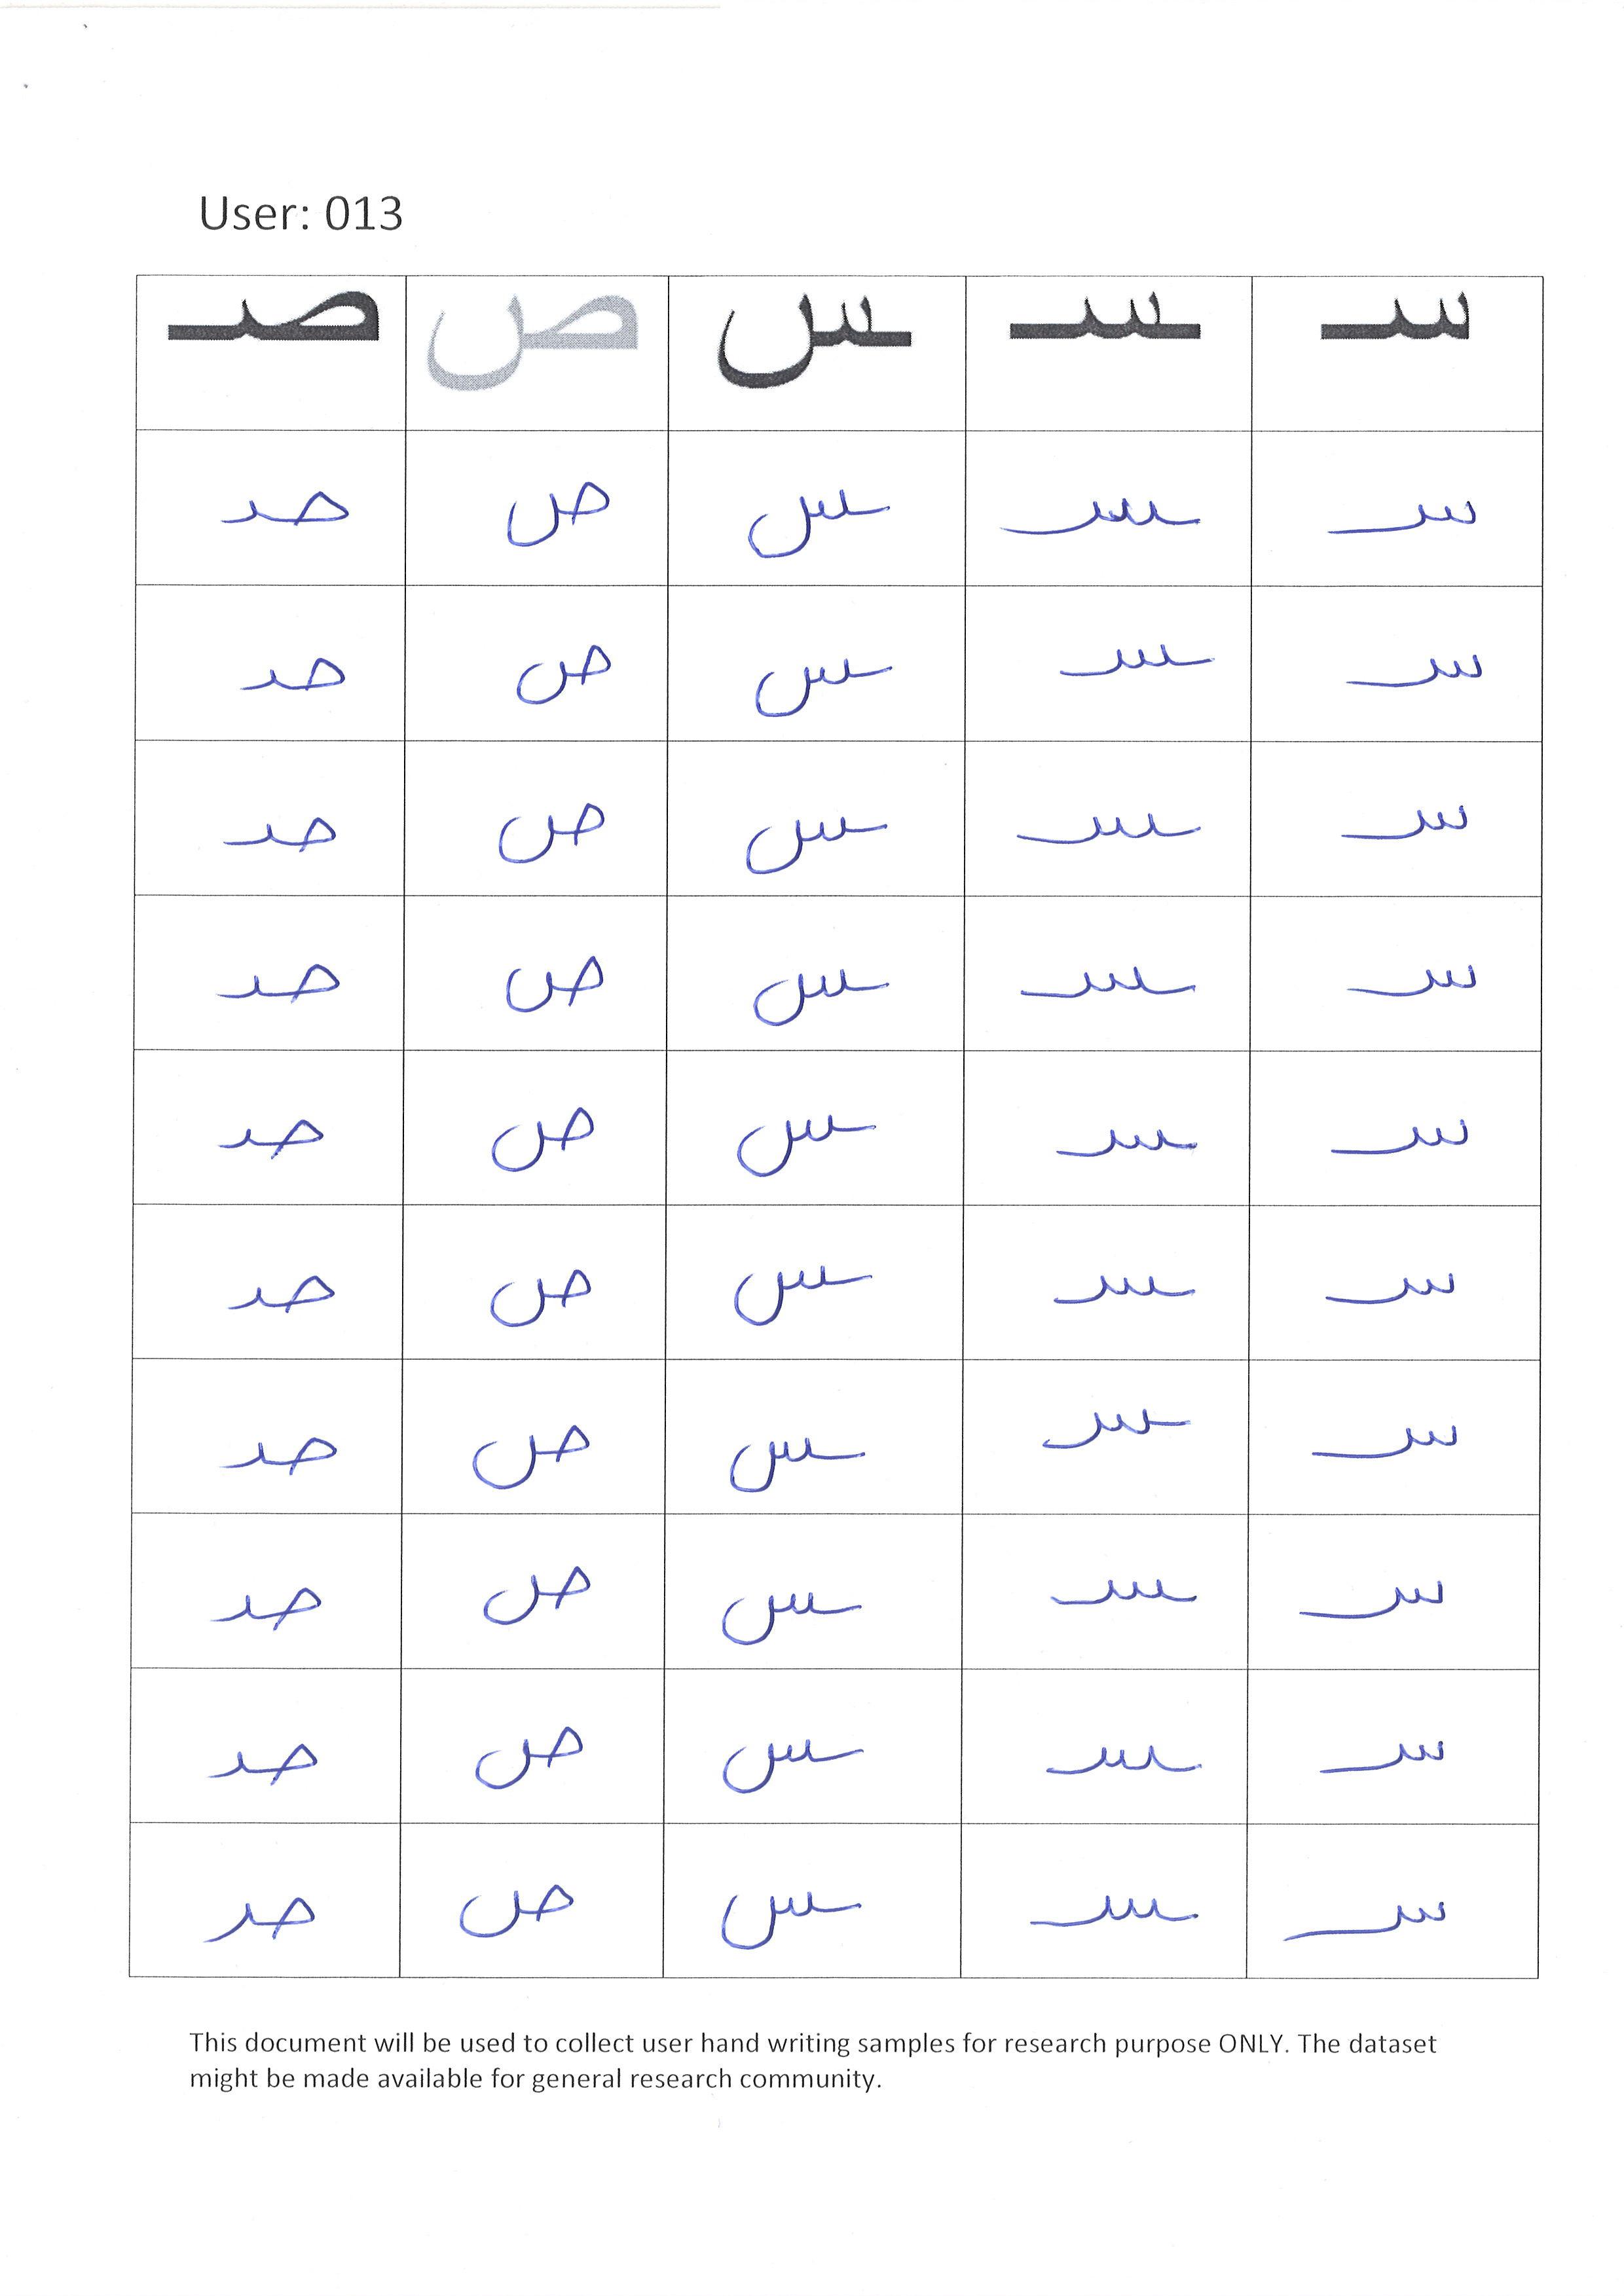 User: 013
سـ ـسـ ـس ص صـ
سـ ـسـ ـس ص صـ
سـ ـسـ ـس ص صـ
سـ ـسـ ـس ص صـ
سـ ـسـ ـس ص صـ
سـ ـسـ ـس ص صـ
سـ ـسـ ـس ص صـ
سـ ـسـ ـس ص صـ
سـ ـسـ ـس ص صـ
سـ ـسـ ـس ص صـ
سـ ـسـ ـس ص صـ
This document will be used to collect user hand writing samples for research purpose ONLY. The dataset
might be made available for general research community.